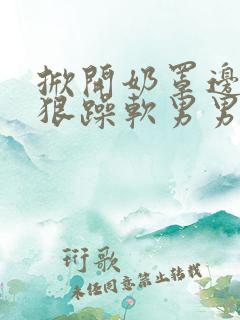 掀開奶罩邊
狠躁軟男男
衍歌
未任同意禁止转载